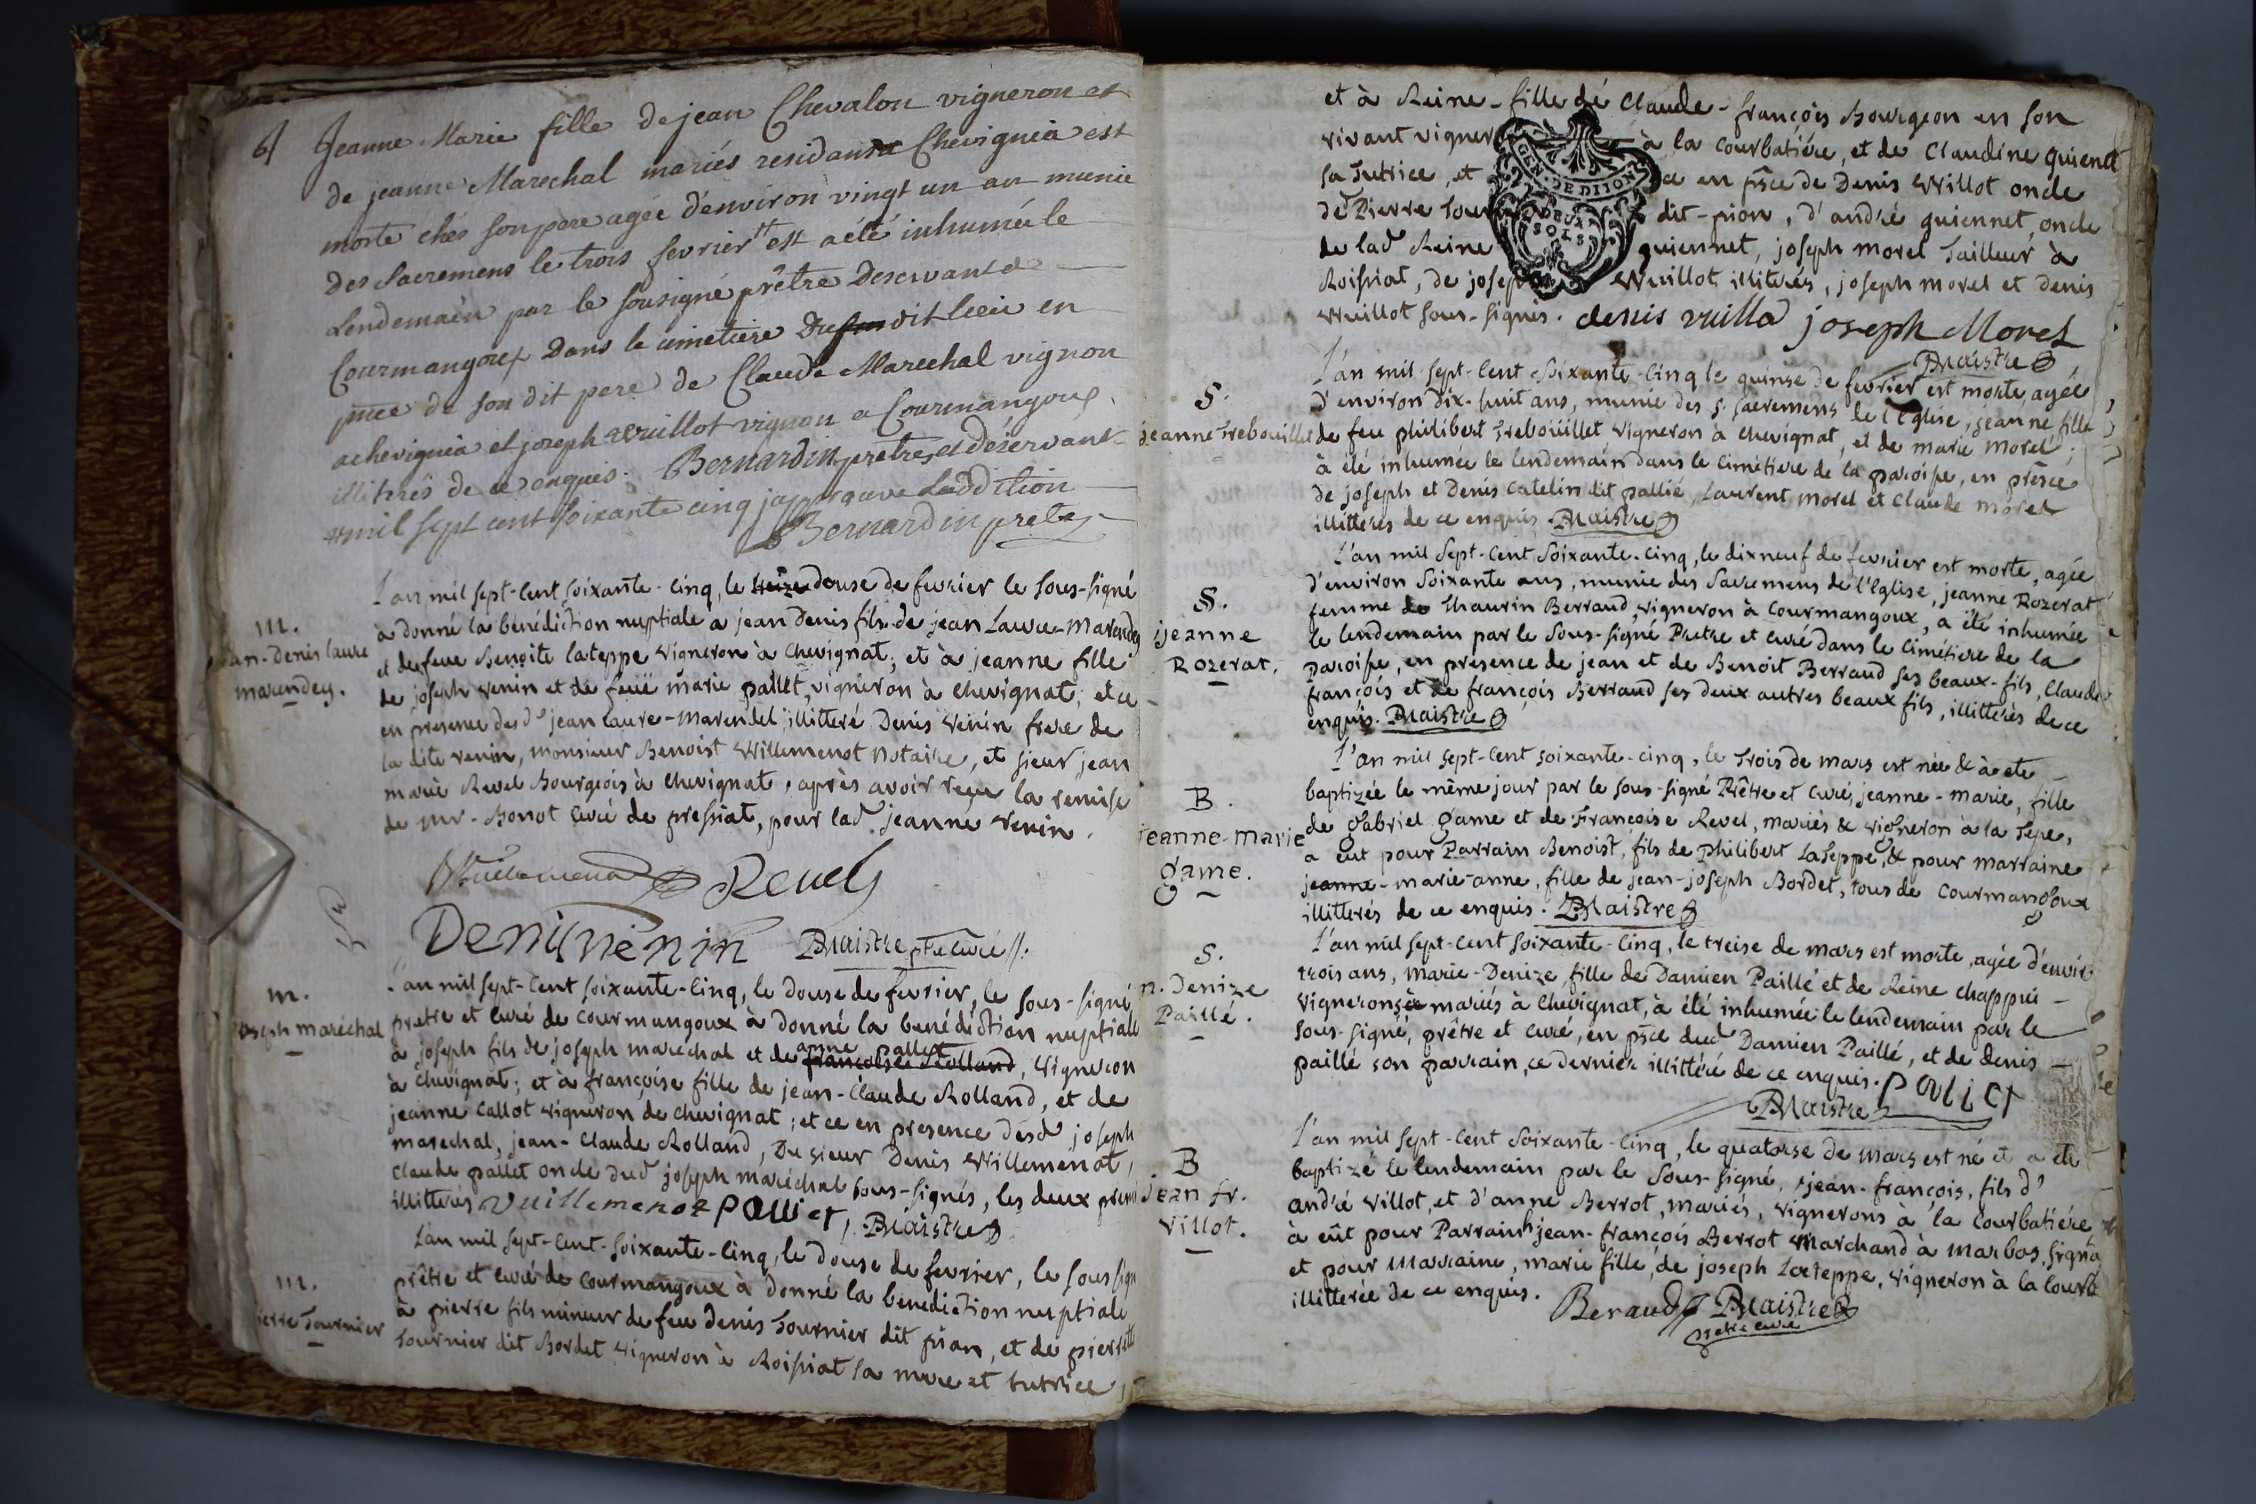 6
Jeanne Marie fille de jean Chevalon vigneron et
de jeanne Marechal mariés residans a Chevignia est
morte chés son pere agée d'environ vingt un an munie
des Sacremens le trois fevrier est a été inhumée le
Lendemain par le sousigné prêtre Deservant de
Courmangoux Dans le cimetiere Du dit lieu en
pnce de son dit pere de Claude Marechal vignon
a chevignia et joseph wuillot vignon a Courmangoux
illiterés de ce enquis. Bernardin pretre et déservant
mil sept cent soixante cinq japprouve Laddition
Bernardin pretre
m.
an-Denis laure
marendey.
L'an mil sept-Cent soixante-Cinq, le treize douse de fevrier le sous-signé
à donné la bénédiction nuptiale a jean Denis fils de jean Laure-Marendey
et de feue Benoite lateppe vigneron à Chevignat; et à jeanne fille
de joseph venin et de feüe marie pallet, vigneron à chevignat; et ce
en presence desd. jean laure-Marendel illitteré Denis venin frere de
la dite venin, monsieur Benoist Willemenot Notaire, et sieur jean
marie Revel Bourgeois à chevignat, après avoir reçu la remise
de Mr. Bonot curé de pressiat, pour lad. jeanne venin.
Vuillemenot Revel
Denis venin Maistre ptre curé
m.
oseph maréchal
L'an mil sept-Cent soixante-Cinq, le douse de fevrier, le sous-signé
prêtre et curé de courmangoux à donné la bénédiction nuptiale
anne pallet
à joseph fils de joseph maréchal et de francoise Rolland, vigneron
à chevignat; et à françoise fille de jean-Claude Rolland, et de
jeanne Callot vigneron de chevignat; et ce en presence desd. joseph
marechal, jean-Claude Rolland, Du sieur Denis Willemenot,
Claude pallet oncle dud. joseph maréchal sous-signés, les deux premi
illitterés Vuillemenot Pallier, Maistre
m.
ierre Tournier
L'an mil sept-Cent-soixante-Cinq, le douse de fevrier, le sous sign
prêtre et curé de courmangoux à donné la benediction nuptiale
à pierre fils mineur de feu Denis Tournier dit pion, et de pierrette
Tournier dit Bordet vigneron à Roissiat sa mere et tutrice,
et à Reine-fille de Claude-françois Bourgeon en son
vivant vigner à la Courbatiére, et de Claudine guiennet
sa Tutrice, et ce en pnce de Denis Willot oncle
de Pierre Tour dit-pion, d'andré guiennet, oncle
de lad. Reine guiennet, joseph morel Tailleur à
Roissiat, de joseph Wuillot illiterés, joseph morel et denis
Wuillot sous-signés. denis vuillo joseph Morel
Maistre
GEN. DE DIJON
DEUX
SOLS
S.
jeanne Trebouillet
L'an mil sept-Cent soixante-Cinq le quinse de fevrier est morte, agée
d'environ dix-huit ans, munie des s. sacremens de l'Eglise, jeanne fille
de feu philibert Treboüillet, vigneron à chevignat, et de marie morel;
à été inhumée le lendemain dans le Cimétiere de la paroisse, en présce
de joseph et Denis Catelin dit pallié, Laurent morel et Claude morel
illitterés de ce enquis. Maistre
S.
jeanne
Rozerat.
L'an mil sept-Cent soixante-Cinq, le dixneuf de fevrier est morte, agée
d'environ soixante ans, munie des Sacremens de l'Eglise, jeanne Rozerat
femme de Thaurin Berraud, vigneron à Courmangoux, a été inhumée
le lendemain par le Sous-signé Prêtre et curé dans le Cimétiere de la
paroisse, en presence de jean et de Benoit Berraud ses beaux-fils, Claude
françois et de françois Berraud ses deux autres beaux fils, illitterés de ce
enquis. Maistre
B.
jeanne-marie
game.
L'an mil sept-Cent soixante-cinq, le Trois de mars est née & à eté
baptizée le même jour par le sous-signé Prêtre et curé, jeanne-marie, fille
de Gabriel game et de Françoise Revel, mariés & vigneron à la Tepe,
a eut pour Parrain Benoist, fils de philibert LaTeppe, & pour marraine
jeanne-marie-anne, fille de jean-joseph Bordet, tous de Courmangoux
illitterés de ce enquis. Maistre
S.
m. Denize
Paillé.
L'an mil sept-Cent soixante-Cinq, le treise de mars est morte, agée d'envir
trois ans, marie-Denize, fille de Damien Paillé et de Reine chappui
vignerons mariés à chevignat, à été inhumée le lendemain par le
sous-signé, prêtre et curé, en pnce dud Damien Paillé, et de denis
paillé son parrain, ce dernier illittéré de ce enquis. Palict
Maistre
B
jean fr.
villot.
L'an mil sept-Cent soixante-Cinq, le quatorse de mars est né et a été
baptizé le lendemain par le Sous-signé, jean-françois, fils d'
andré villot, et d'anne Berrot, mariés, vignerons à la Courbatiére
à eût pour Parrain jean-françois Berrot Marchand à marbos, signé
et pour Marraine, marie fille, de joseph Lateppe, vigneron à la Courb
illitterée de ce enquis. Beraud Maistre
prêtre curé